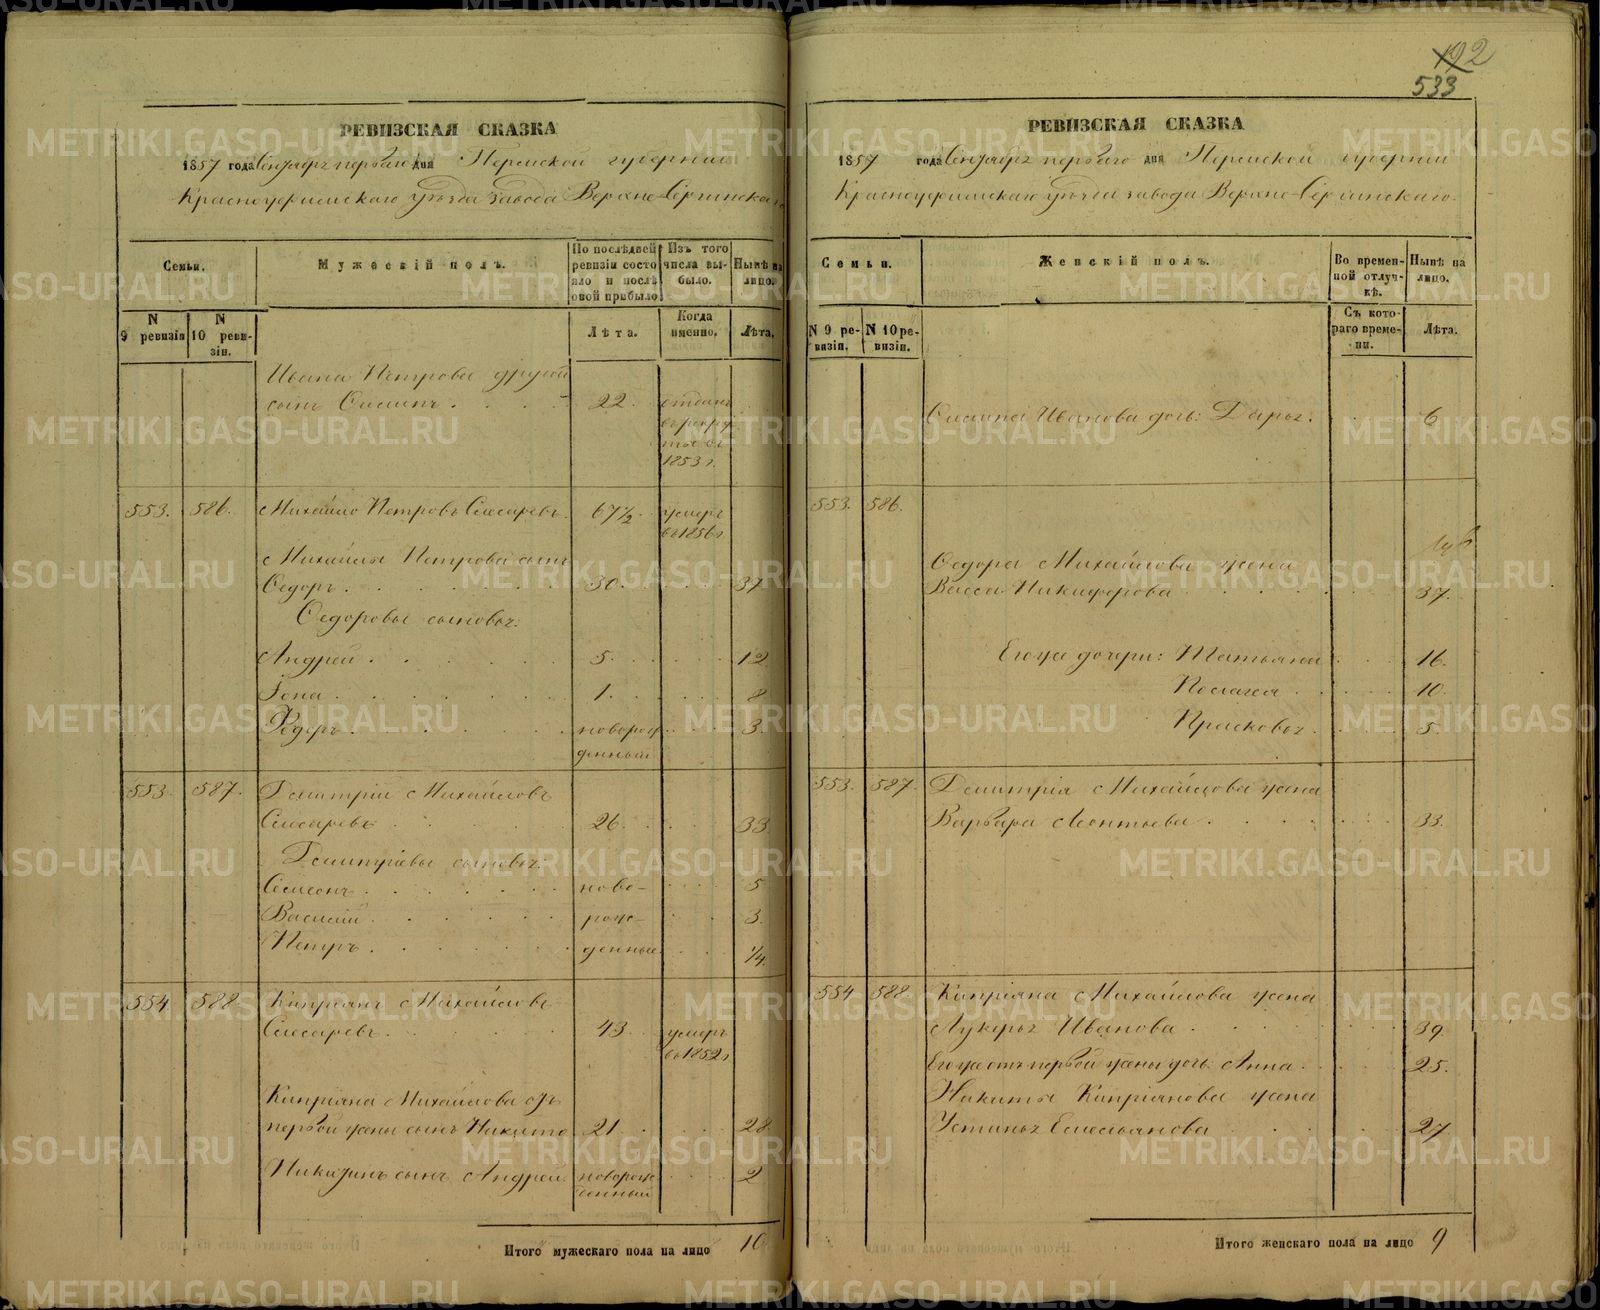 192
533
РЕВИЗСКАЯ СКАЗКА
1857 года Сентября перваго дня Пермской губернии
Красноуфимскаго уѣзда завода Верхне-Сергинскаго
Семьи.
Мужескій полъ.
По послѣдней ревизіи состояло и послѣ оной прибыло
Изъ того числа выбыло.
Нынѣ на лицо.
N 9 ревизіи
N 10 ревизіи.
Лѣта.
Когда именно.
Лѣта.
Ивана Петрова другой
сынъ 22 отданъ
въ рекруты въ
1853 г.
553. 586. Михайло Петровъ Слесаревъ. 67 1/2 умеръ
въ 1856 г.
Михайлы Петрова сынъ
Ѳедоръ 30. 37
Ѳедоровы сыновья:
Андрей 5. 12
Іона 1. 8
Ѳедоръ новорож- 3.
денный
553. 587. Дмитрій Михайловъ
Слесаревъ 26. 33
Дмитріевы сыновья:
Семенъ ново- 5
Василій рож- 3.
Петръ денные 1/4.
554 588 Кипріянъ Михайловъ
Слесаревъ 43 умеръ
въ 1852 г
Кипріяна Михайлова отъ
первой жены сынъ Никита 21 28
Никитинъ сынъ Андрей новорож- 2
денный
Итого мужескаго пола на лицо 10
РЕВИЗСКАЯ СКАЗКА
1857 года Сентября перваго дня Пермской губерніи
Красноуфимскаго уѣзда завода Верхне-Сергинскаго.
Семьи.
Женскій полъ.
Во временной отлучкѣ.
Нынѣ на лицо.
N 9 ревизіи.
N 10 ревизіи.
Съ котораго времени.
Лѣта.
Ивановa дочь: Дарья. 6
553. 586.
Ѳедора Михайлова жена
Васса Никифорова 37.
Его же дочери: Татьяна 16.
Пелагея 10.
Прасковья 5.
553. 587. Дмитрія Михайлова жена
Варвара Леонтьева 33.
554 588 Кипріяна Михайлова жена
Лукерья Иванова 39.
Его же отъ первой жены дочь Анна 25.
Никиты Кипріянова жена
Устинья Емельянова 27
Итого женскаго пола на лицо 9
METRIKI.GASO-URAL.RU